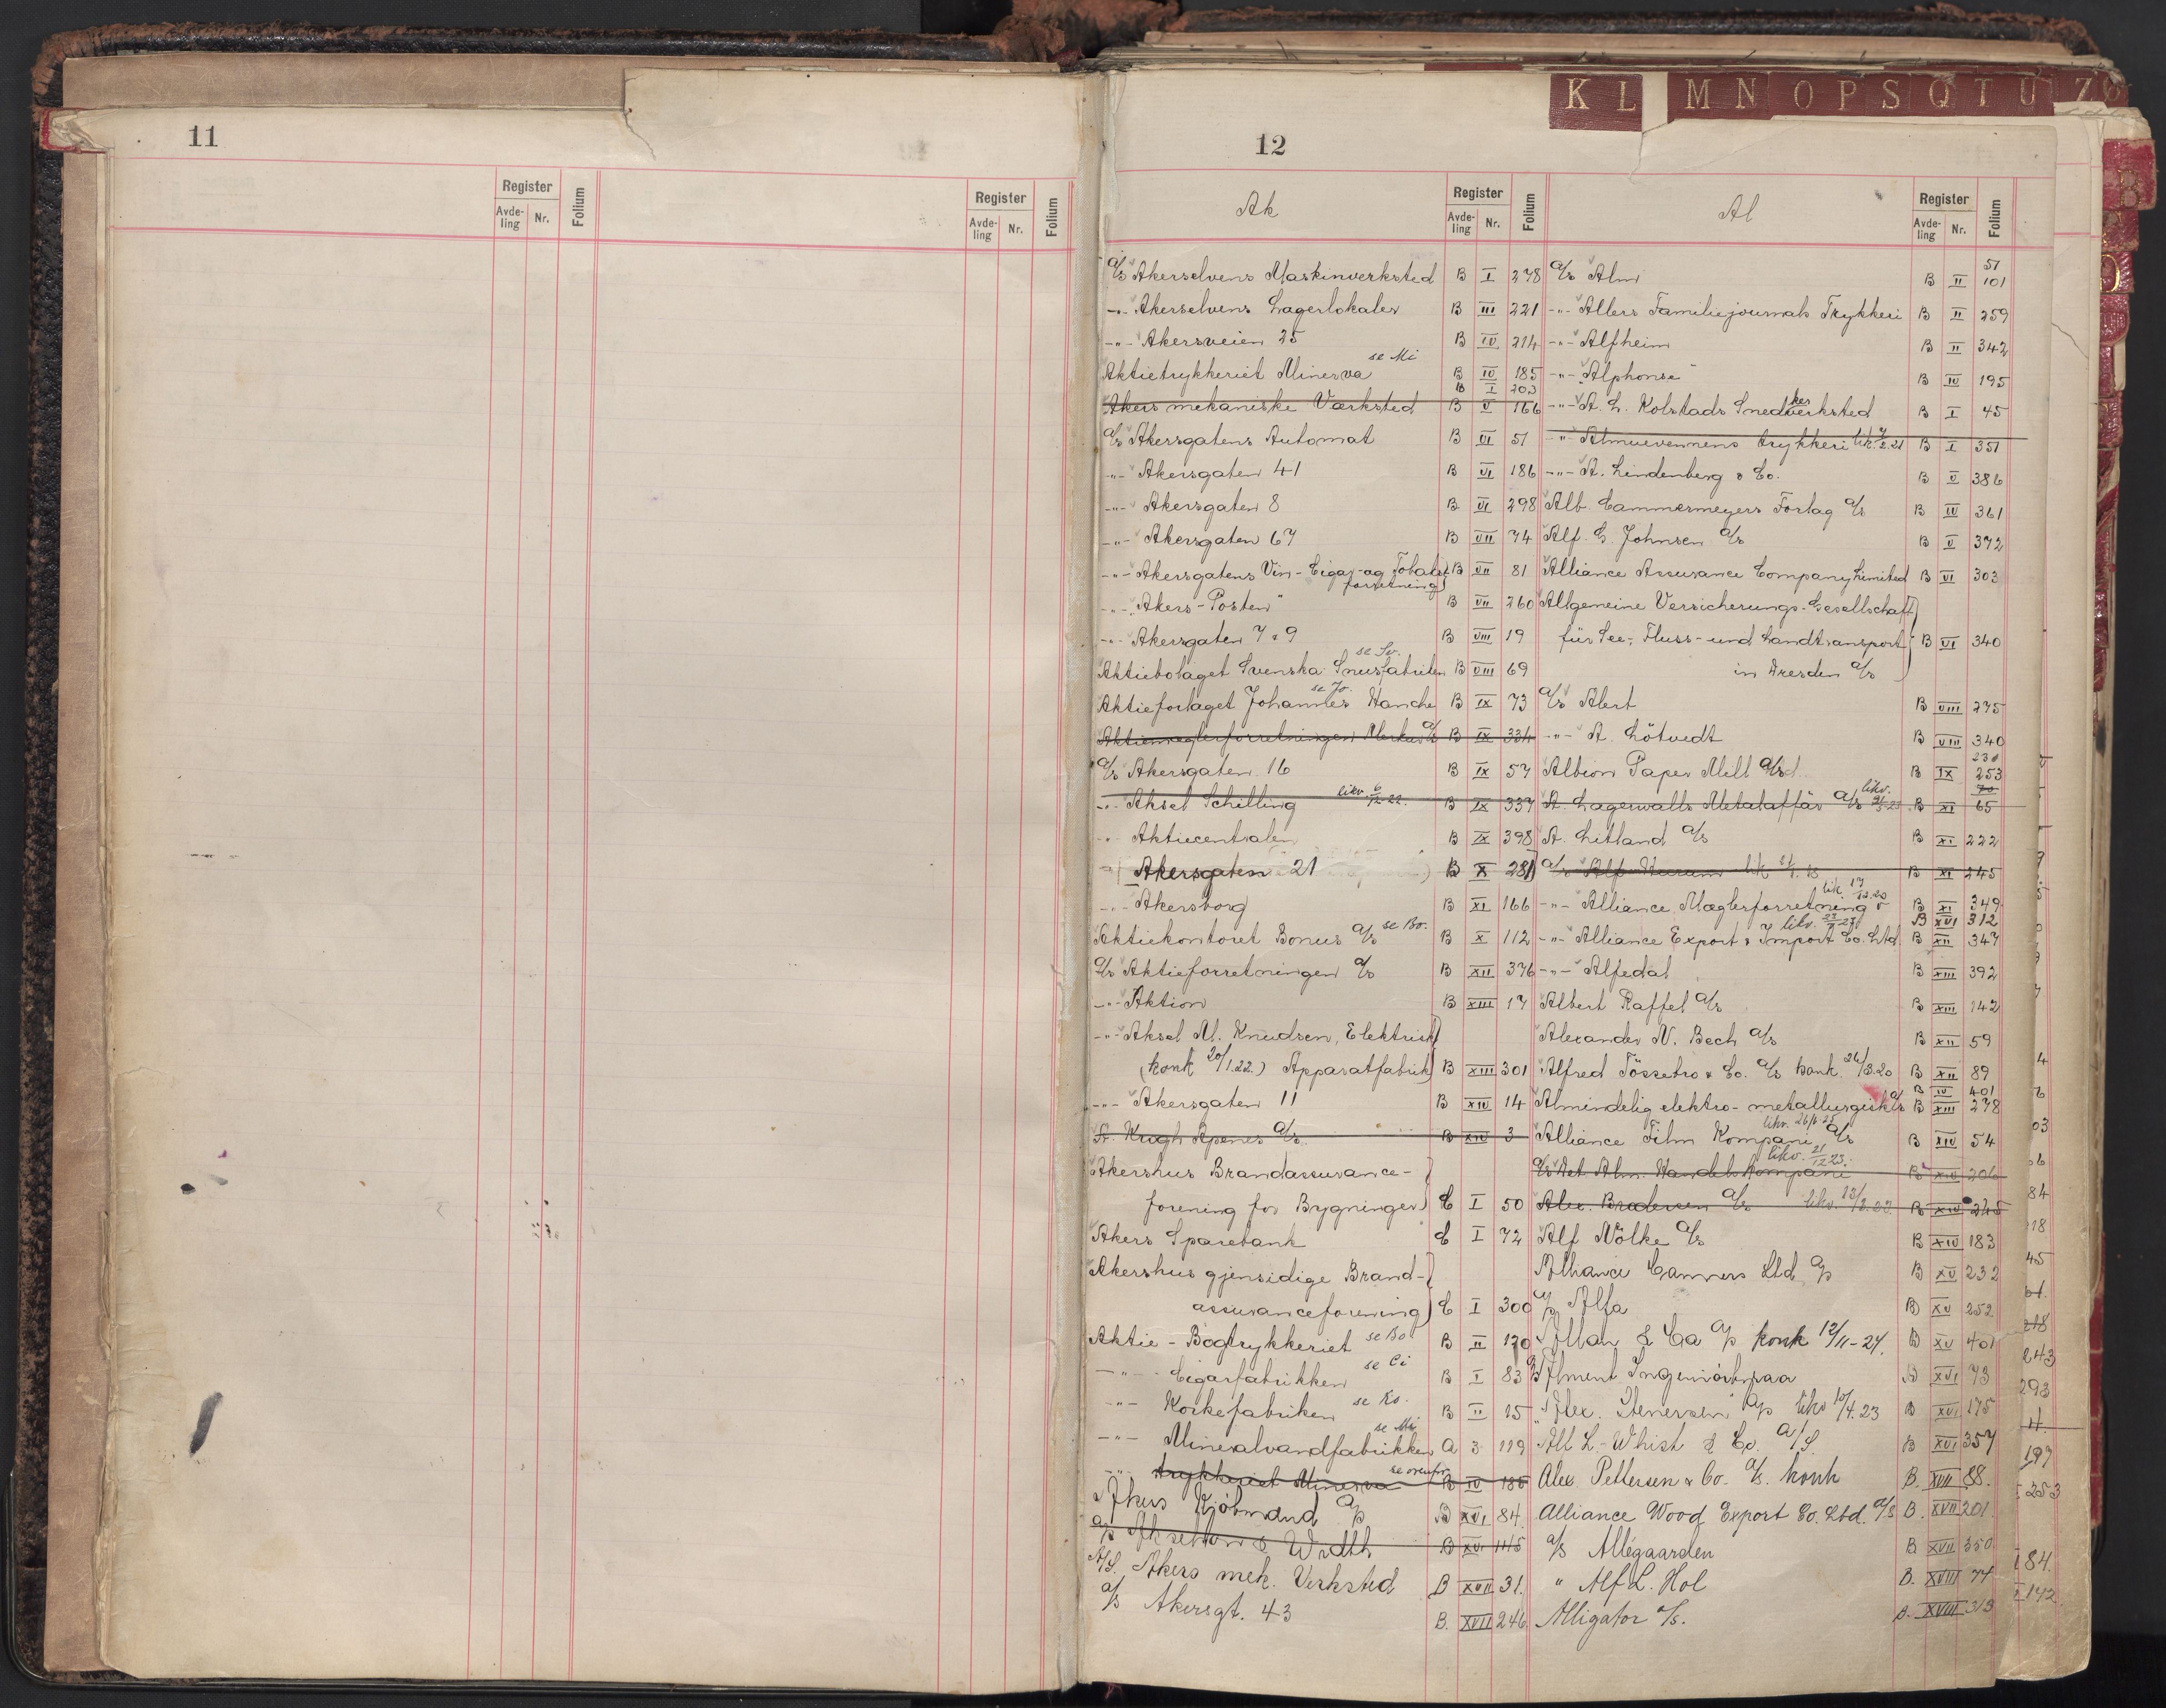 11
Register
Avde-
ling
Nr.
Folium
Register
Avde-
ling
Nr.
Folium
K L M N O P S Q T U Z Ø
12
Ak
Register
Avde-
ling
Nr.
Folium
a/s Akerselvens Maskinverksted B I 278
-"- Akerselvens Lagerlokaler B III 221
-"- Akersveien 25 B IV 214
Aktietrykkeriet Minerva se Mi B IV 185
B I 203
Akers mekaniske Værksted B V 166
a/s Akersgatens Automat B VI 51
-"- Akersgaten 41 B VI 186
-"- Akersgaten 8 B VI 298
-"- Akersgaten 67 B VII 74
-"- Akersgatens Vin- Cigar- og Tobaks- B VII 81
forretning
-"- "Akers-Posten" B VII 260
-"- Akersgaten 7 & 9 B VIII 19
Aktiebolaget Svenska Snusfabriken se Sv. B VIII 69
Aktieforlaget Johannes Hanche se Jo. B IX 73
Aktiemæglerforretningen Merkur a/s B IX 334
a/s Akersgaten 16 B IX 57
-"- Aksel Schilling likv. 6/12-22. B IX 337
-"- Aktiecentralen B IX 398
-"- (Akersgaten 21 ) B X 281
-"- Akersborg B XI 166
Aktiekontoret Bonus a/s se Bo. B X 112
a/s Aktieforretningen a/s B XII 376
-"- Aktion B XIII 17
-"- Aksel M. Knudsen, Elektrisk
(konk 20/1.22.) Apparatfabrik B XIII 301
-"- Akersgaten 11 B XIV 14
A. Krogh Apenes a/s B XIV 3
Akershus Brandassurance-
forening for Bygninger C I 50
Akers Sparebank C I 72
Akershus gjensidige Brand-
assuranceforening C I 300
Aktie-Bogtrykkeriet se Bo B II 170
-"- Cigarfabrikken se Ci B I 83
-"- Korkefabriken se Ko. B II 15
-"- Mineralvandfabrikken se Mi A 3 119
-"- trykkeriet Minerva se ovenfor B IV 185
Akers Kjöbmænd a/s B XVI 84.
a/s Akselson & Wroth B XV 145
A/S. Akers mek. Verksted B XVII 31.
a/s Akersgt. 43 B. XVII 246
Al
Register
Avde-
ling
Nr.
Folium
a/s Alm B II 51
101
-"- Allers Familiejournals Trykkeri B II 259
-"- Alfheim B II 342
-"- "Alphonse" B IV 195
-"- A. L. Kolstads Snedkerverksted B I 45
-"- Almuevennens trykkeri B I 351
-"- A. Lindenberg & Co. B V 386
Alb. Cammermeyers Forlag a/s B IV 361
Alf. G. Johnsen a/s B V 372
Alliance Assurance Company Limited B VI 303
Allgemeine Versicherungs-Gesellschaft
für See-, Fluss- und Landtransport B VI 340
in Dresden a/s
a/s Alert B VIII 275
-"- A. Lötvedt B VIII 340
Albion Paper Mill a/s B IX 253
230
A. Lagerwalls Metalaffär a/s likv. B XI 65
A. Litland a/s B XI 222
a/s Alf Hurum B XI 245
-"- Alliance Mæglerforretning lik. 17/12.20 B XI 349
B XVI 312
-"- Alliance Export & Import Co. Ltd likv. B XII 347
-"- Alfedal B XIII 392
Albert Raffel a/s B XIII 142
Alexander N. Bech a/s B XII 59
Alfred Tössebro & Co. a/s konk. 26/3.20 B XII 89
B IV 401
Almindelig elektro-metallurgisk a/s B XIII 278
Alliance Film Kompani a/s B XIV 54
a/s Det Alm. Handelskompani likv. 21/12 23. B XIV 206
Alex. Brodersen a/s B XIV 245
Alf Nölke a/s B XIV 183
Alliance Canners Ltd a/s B XV 232
a/s Alfa B XV 252
Allan & Co a/s konk 12/11-24. B XV 401
Alment Ingeniörbyraa B XVI 73
Alex. Stenersen a/s likv 10/4.23 B XVI 175
Alb L. Whist & Co. A/S. B XVI 357
Alex Pettersen & Co. a/s. konk B. XVII 88.
Alliance Wood Export Co. Ltd. a/s B. XVII 201.
a/s Allégaarden B XVII 350
" Alf L. Hol B. XVIII 77
Alligator a/s. B. XVIII 313
4
6
03
56
84
18
45
218
243
293
11.
197
253
184.
142.